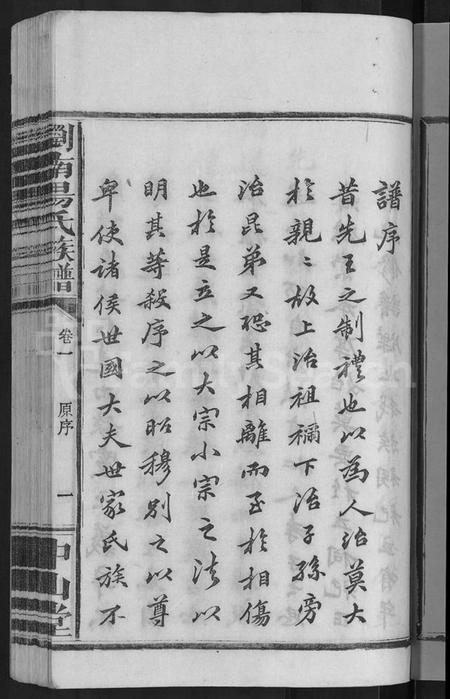 譜序
昔先王之制禮也以為人治莫大
於親親故上治祖禰下治子孫旁
治昆弟又恐其相離而至於相傷
也於是立之以大宗小宗之法以
明其等殺序之以昭穆別之以尊
卑使諸侯世國大夫世家氏族不
瀏南湯氏族譜
卷一
原序
一
中山堂